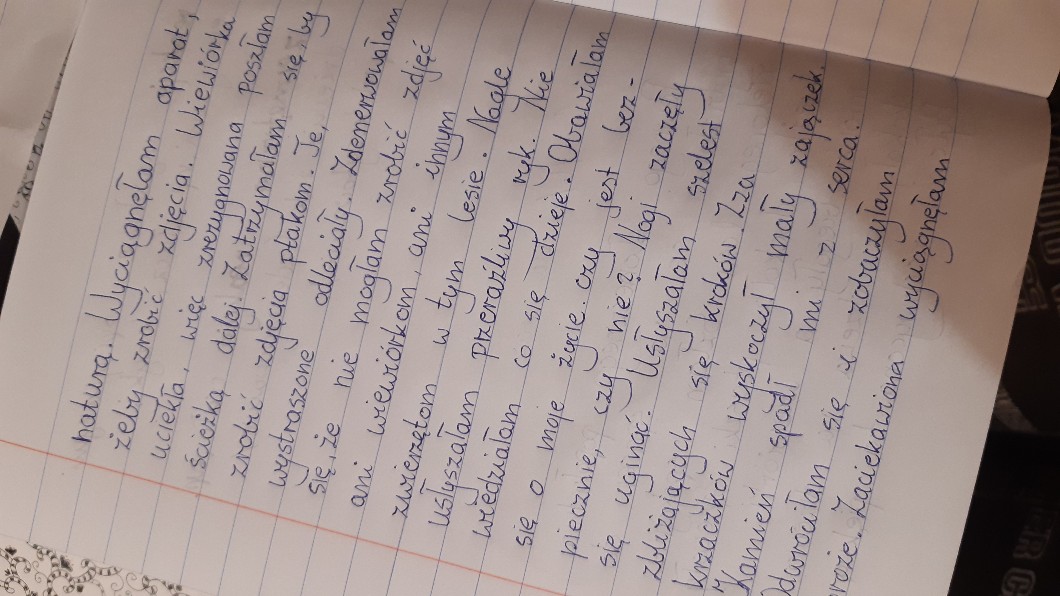 naturą. Wyciągnęłam aparat,
żeby zrobić zdjęcia. Wiewiórka
uciekła, więc zrezygnowana poszłam
ścieżką dalej. Zatrzymałam się, by
zrobić zdjęcia ptakom. Je,
wystraszone odleciały. Zdenerwowałam
się, że nie mogłam zrobić zdjęć
ani wiewiórkom, ani innym
zwierzętom w tym lesie. Nagle
usłyszałam przeraźliwy ryk. Nie
wiedziałam co się dzieje. Obawiałam
się o moje życie. czy jest bez-
piecznie, czy nie? Nogi zaczęły
się uginąć. Usłyszałam szelest
zbliżających się kroków. Zza
krzaczków wyskoczył mały zajączek.
Kamień spadł mi z serca.
Odwróciłam się i zobaczyłam
Zaciekawiona wyciągnęłam